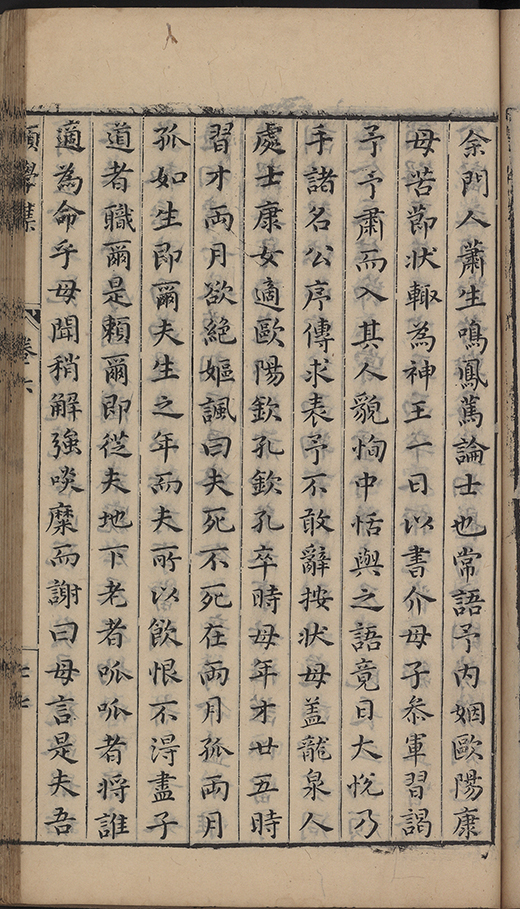 余門人蕭生鳴鳳篤論士也常語予内姻歐陽康
母苦節状輙為神王一日以書介母子参軍習謁
予予肅而入其人貌恂中恬與之語竟日大悅乃
手諸名公序傳求表予不敢辭按状母盖龍泉人
處士康女適歐陽欽孔欽孔卒時母年才廿五時
習才兩月欲絶嫗諷曰夫死不死在兩月孤兩月
孤如生即爾夫生之年而夫所以飲恨不淂盡子
道者職爾是頼爾即從夫地下老者呱呱者将誰
適為命乎母聞稍解強啖糜而謝曰母言是夫吾
學集 卷六